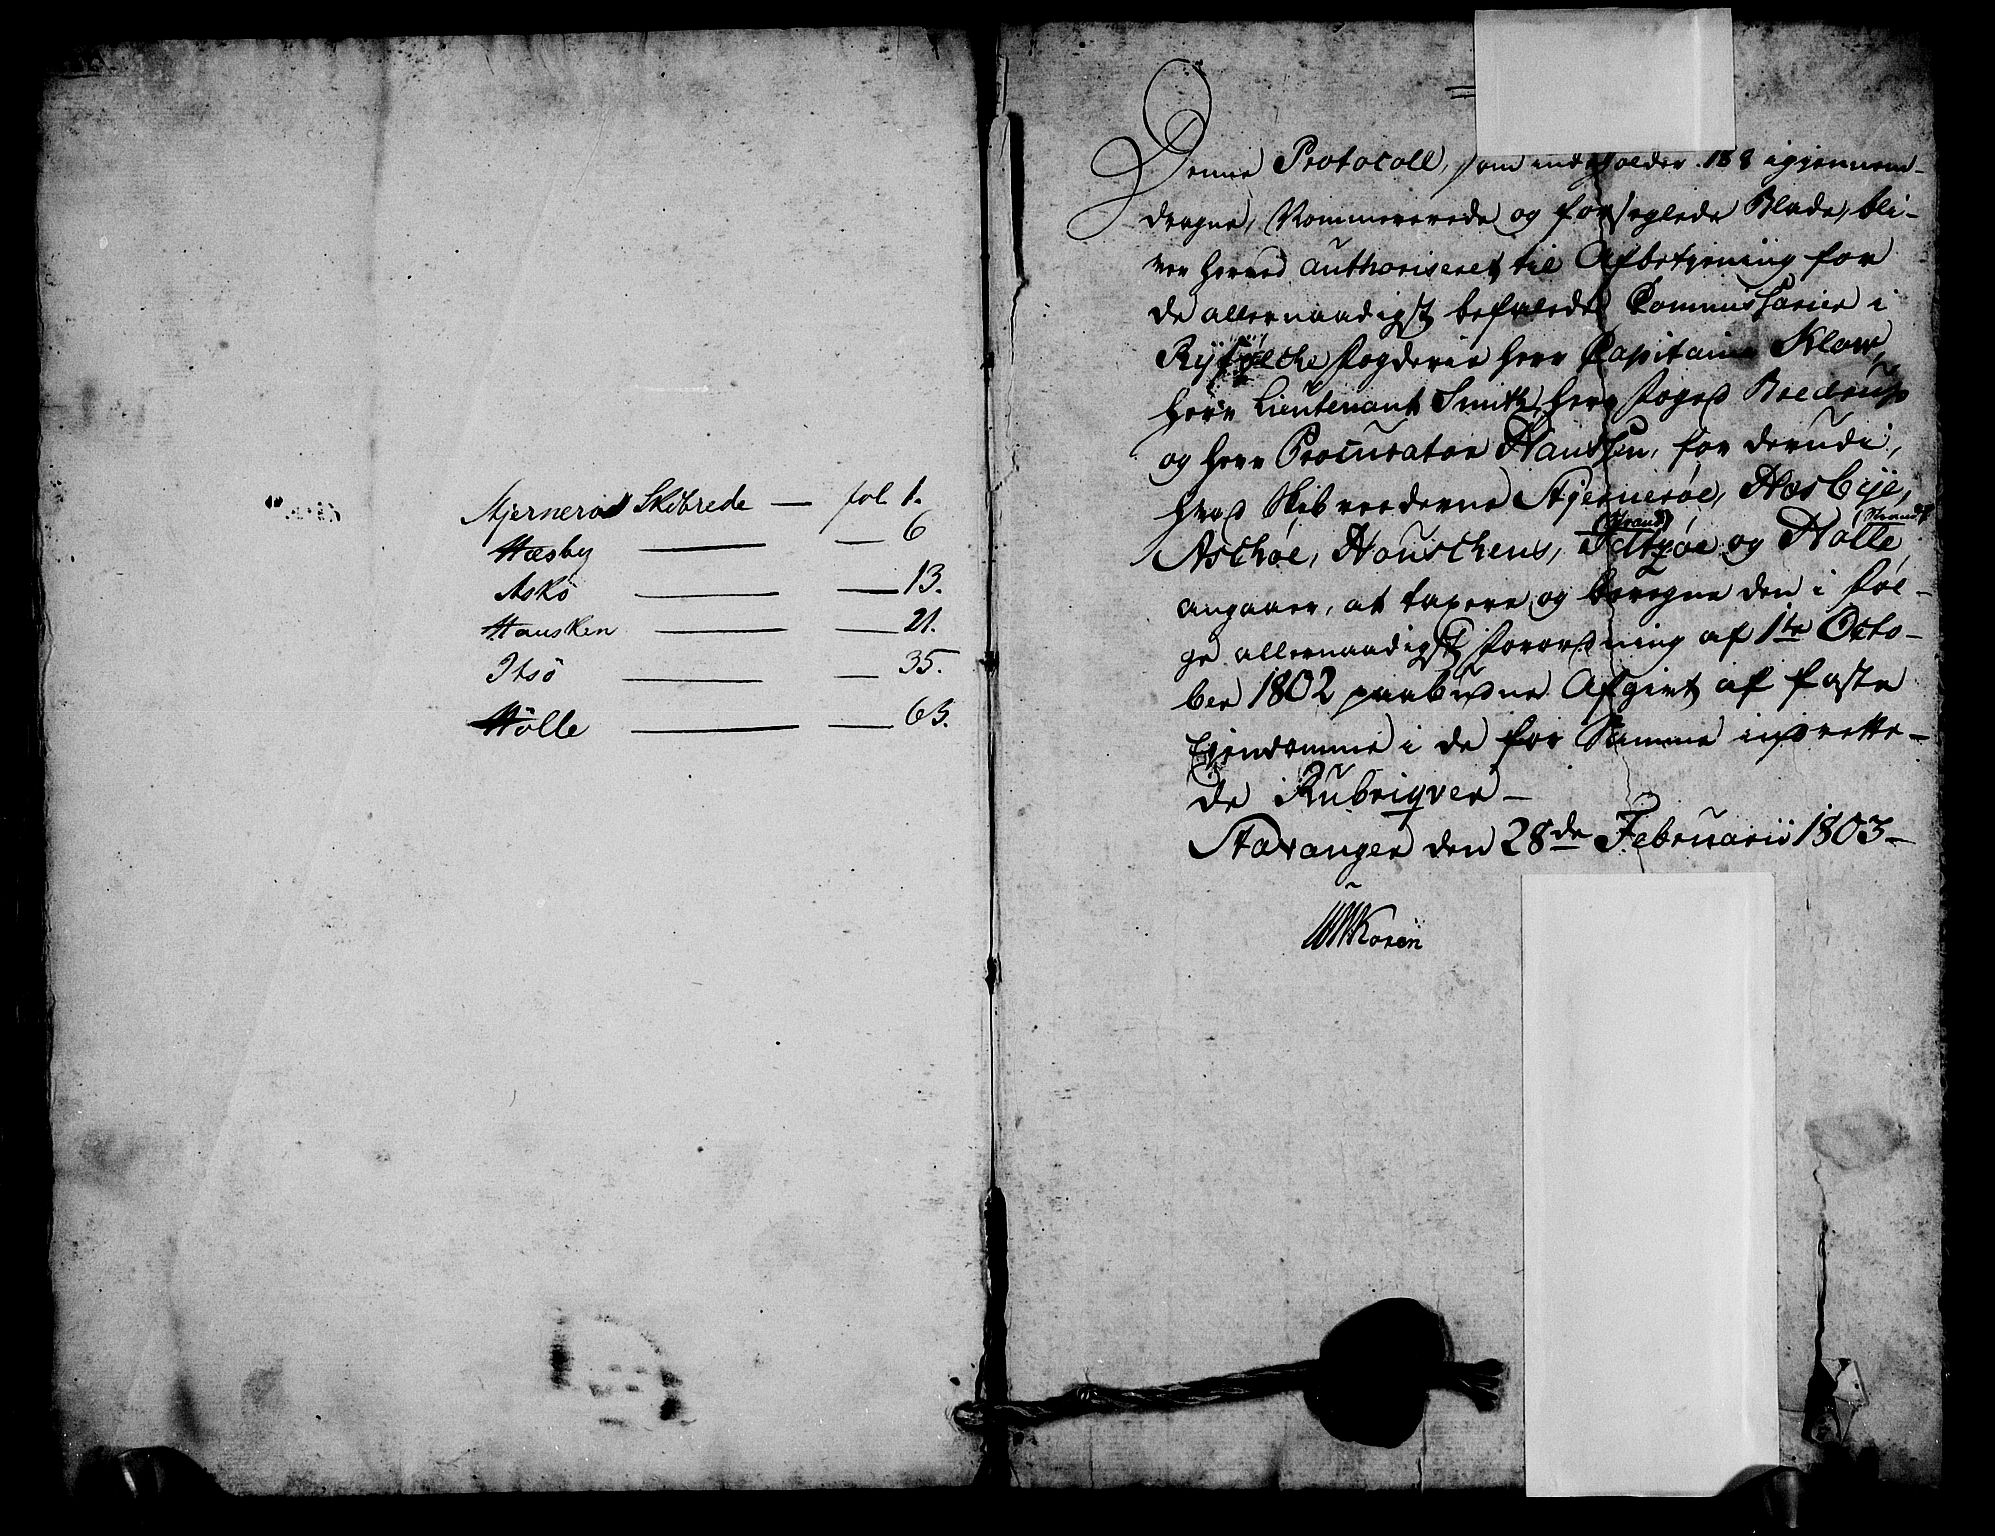 Stjernerøe Skibrede — fol 1.
Hæsby — — 6
Askö — — 13.
Hausken — — 21.
Itsö — — 35.
Hölle — — 63.
Denne Protocoll, som indeholder 188 igiennem-
dragne, Nommererede og forseglede Blade, bli-
ver herved authoriseret til Afbetjening for
de allernaadigst befalede Commissarier i
Ryefylcke Fogderie Herr Capitaine Klow,
Herr Lieutenant Smith, Herr Foged Bredrup
og Herr Procurator Handsen, for derudi,
hvad Skibreederne Stjernerøe, Hæsbye,
(Strand) (Strand)
Aschøe, Houschens, Idtzøe og Holle
angaaer, at taxere og beregne den i føl-
ge allernaadigst Forordning af 1te Octo-
ber 1802 paabudne Afgivt af faste
Ejendomme i de for Samme indrette-
de Rubriqver —
Stavanger den 28de Februarii 1803 —
Koren